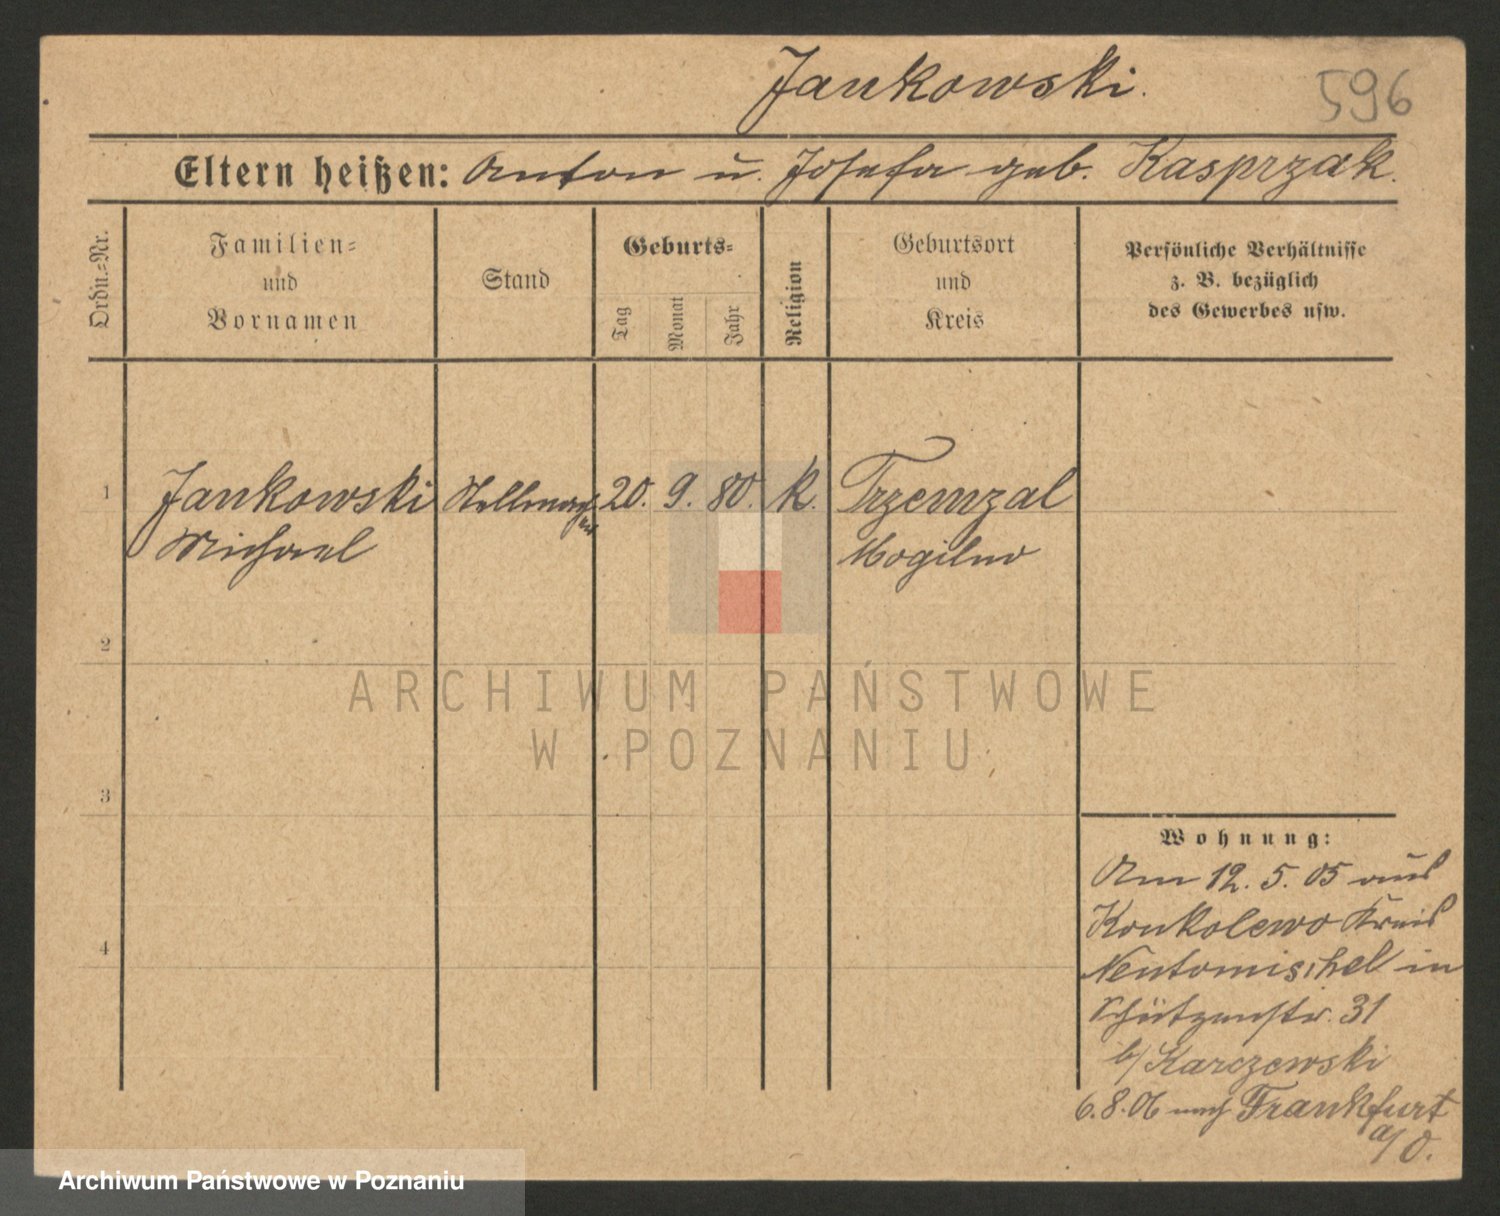 Jankowski.
596
Eltern heißen: Anton u. Josefa geb. Kasprzak.
Ordn.=Nr.
Familien=
und
Vornamen
Stand
Geburts=
Tag
Monat
Jahr
Religion
Geburtsort
und
Kreis
Persönliche Verhältnisse
z. B. bezüglich
des Gewerbes usw.
1 Jankowski 20. 9. 80. k. Trzemzal
Michael Mogilno
2
ARCHIWUM PAŃSTWOWE
W POZNANIU
3
Wohnung:
Am 12. 5. 05 aus
Konkolewo Kreis
4
Neutomischel in
Schützenstr. 31
b/ Karczewski
6.8.06 nach Frankfurt
a/O.
Archiwum Państwowe w Poznaniu